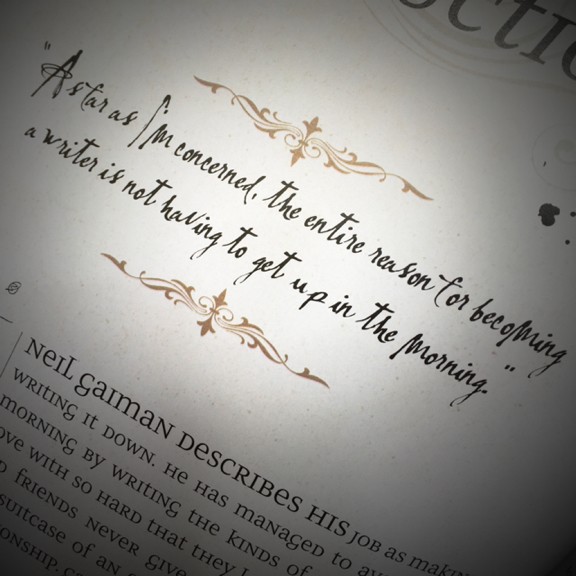 "As far as I'm concerned, the entire reason for becoming
a writer is not having to get up in the morning."
NEIL GAIMAN DESCRIBES HIS JOB AS MAKING
WRITING IT DOWN. HE HAS MANAGED TO
MORNING BY WRITING THE KINDS OF
WITH SO HARD THAT THEY
FRIENDS NEVER GIVE
SUITCASE OF AN